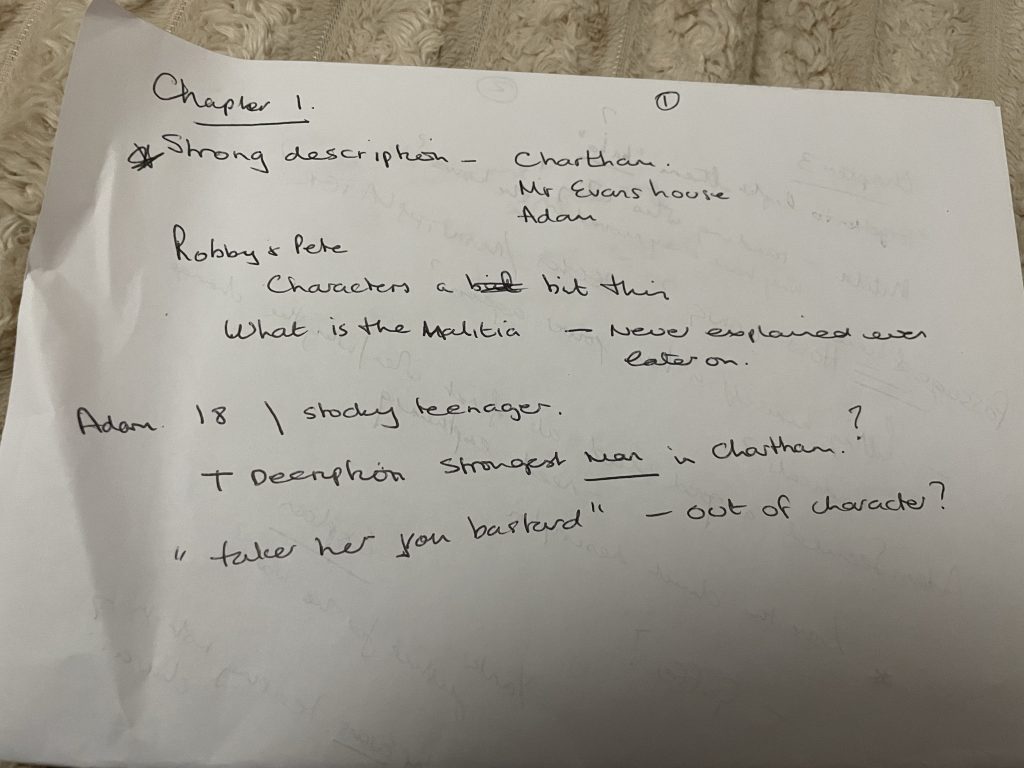 Chapter 1.
①
* Strong description - Chartham.
Mr Evans house
Adam
Robby & Pete
Characters a bit thin
What is the Malitia - Never explained even
later on.
Adam. 18 \ stocky teenager.
+ Description strongest Man in Chartham.?
" taker her you bastard" - out of character?